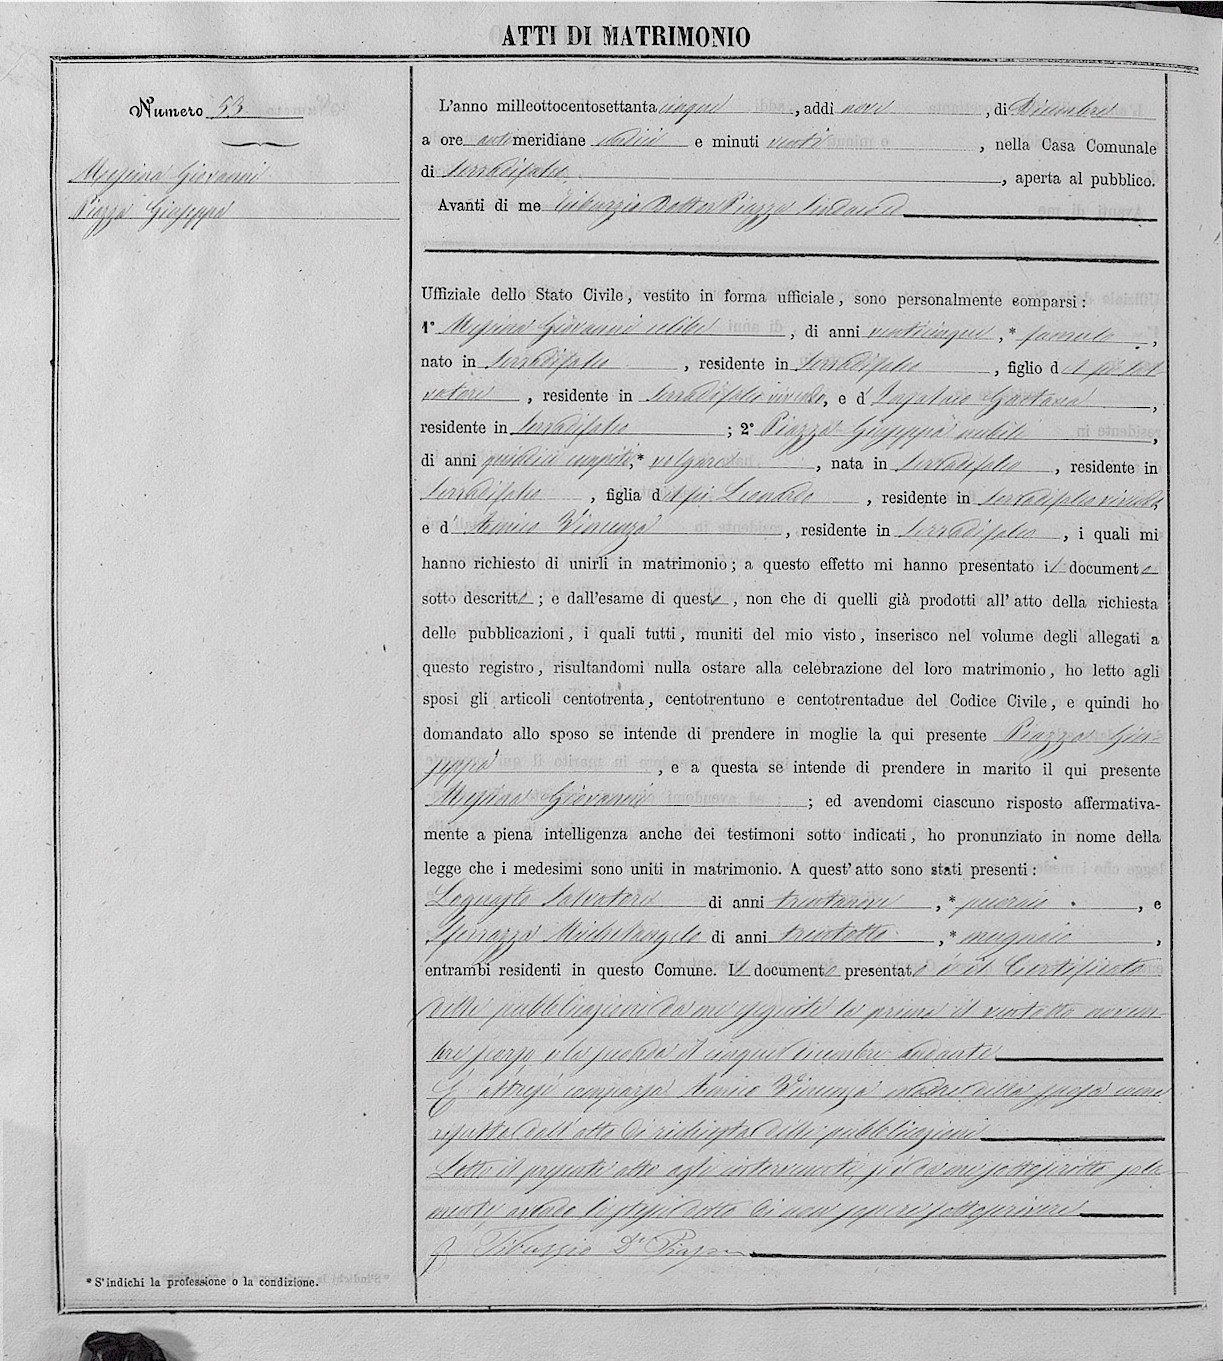 ATTI DI MATRIMONIO
Numero 53
Messina Giovanni
Piazza Giuseppa
L'anno milleottocentosettanta cinque, addì nove, di Dicembre
a ore anti meridiane undici e minuti venti, nella Casa Comunale
di Serradifalco, aperta al pubblico.
Avanti di me Tiburzio Dottor Piazza Sindaco ed
Uffiziale dello Stato Civile, vestito in forma ufficiale, sono personalmente comparsi:
1° Messina Giovanni celibe, di anni venticinque, *
nato in Serradifalco, residente in Serradifalco, figlio del fu Sal
vatore, residente in Serradifalco vivendo, e d' Gaetana,
residente in Serradifalco; 2° Piazza Giuseppa nubile,
di anni quindici compiti, *, nata in Serradifalco, residente in
Serradifalco, figlia del fu Leonardo, residente in Serradifalco vivendo,
e d' Amico Vincenza, residente in Serradifalco, i quali mi
hanno richiesto di unirli in matrimonio; a questo effetto mi hanno presentato il documento
sotto descritto; e dall'esame di questo, non che di quelli già prodotti all'atto della richiesta
delle pubblicazioni, i quali tutti, muniti del mio visto, inserisco nel volume degli allegati a
questo registro, risultandomi nulla ostare alla celebrazione del loro matrimonio, ho letto agli
sposi gli articoli centotrenta, centotrentuno e centotrentadue del Codice Civile, e quindi ho
domandato allo sposo se intende di prendere in moglie la qui presente Piazza Giu-
seppa, e a questa se intende di prendere in marito il qui presente
Messina Giovanni; ed avendomi ciascuno risposto affermativa-
mente a piena intelligenza anche dei testimoni sotto indicati, ho pronunziato in nome della
legge che i medesimi sono uniti in matrimonio. A quest'atto sono stati presenti:
Loguasto Salvatore di anni trentanove, *, e
Sferrazza Michelangelo di anni trentotto, * mugnaio,
entrambi residenti in questo Comune. Il documento presentato è il Certificato
delle pubblicazioni da me eseguite la prima il ventotto novem-
bre scorso, e la seconda il cinque dicembre andante
È altresì comparsa Amico Vincenza madre della sposa come
risulta dall'atto di richiesta delle pubblicazioni
Letto il presente atto agli intervenuti, si è da me sottoscritto sola
mente, avendo li stessi detto di non sapere sottoscrivere
Tiburzio Dr Piazza
* S'indichi la professione o la condizione.